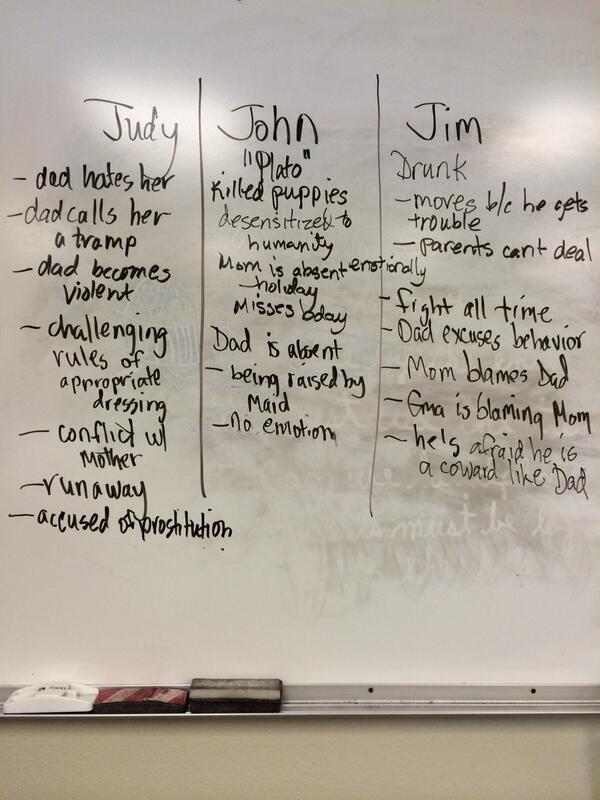 Judy
- dad hates her
- dad calls her
a tramp
- dad becomes
violent
- challenging
rules of
appropriate
dressing
- conflict w/
Mother
- runaway
- accused of prostitution
John
"Plato"
Killed puppies
desensitized to
humanity
Mom is absent emotionally
- holiday
Misses bday
Dad is absent
- being raised by
Maid
- no emotion
Jim
Drunk
- moves b/c he gets
trouble
- parents cant deal
- fight all time
- Dad excuses behavior
- Mom blames Dad
- Gma is blaming Mom
- he's afraid he is
a coward like Dad
must be